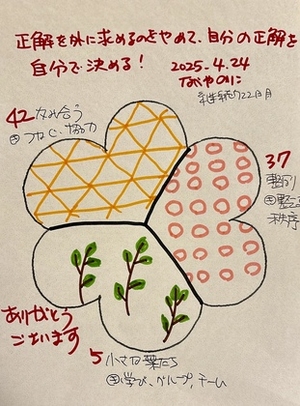 正解を外に求めるのをやめて、自分の正解を
自分で決める！
2025.4.24
継続722日目
42 なみ合う
意 つなぐ、協力
37
整列
意 整う
秩序
ありがとう
ございます
5 小さな葉たち
意 学び、グループ、チーム